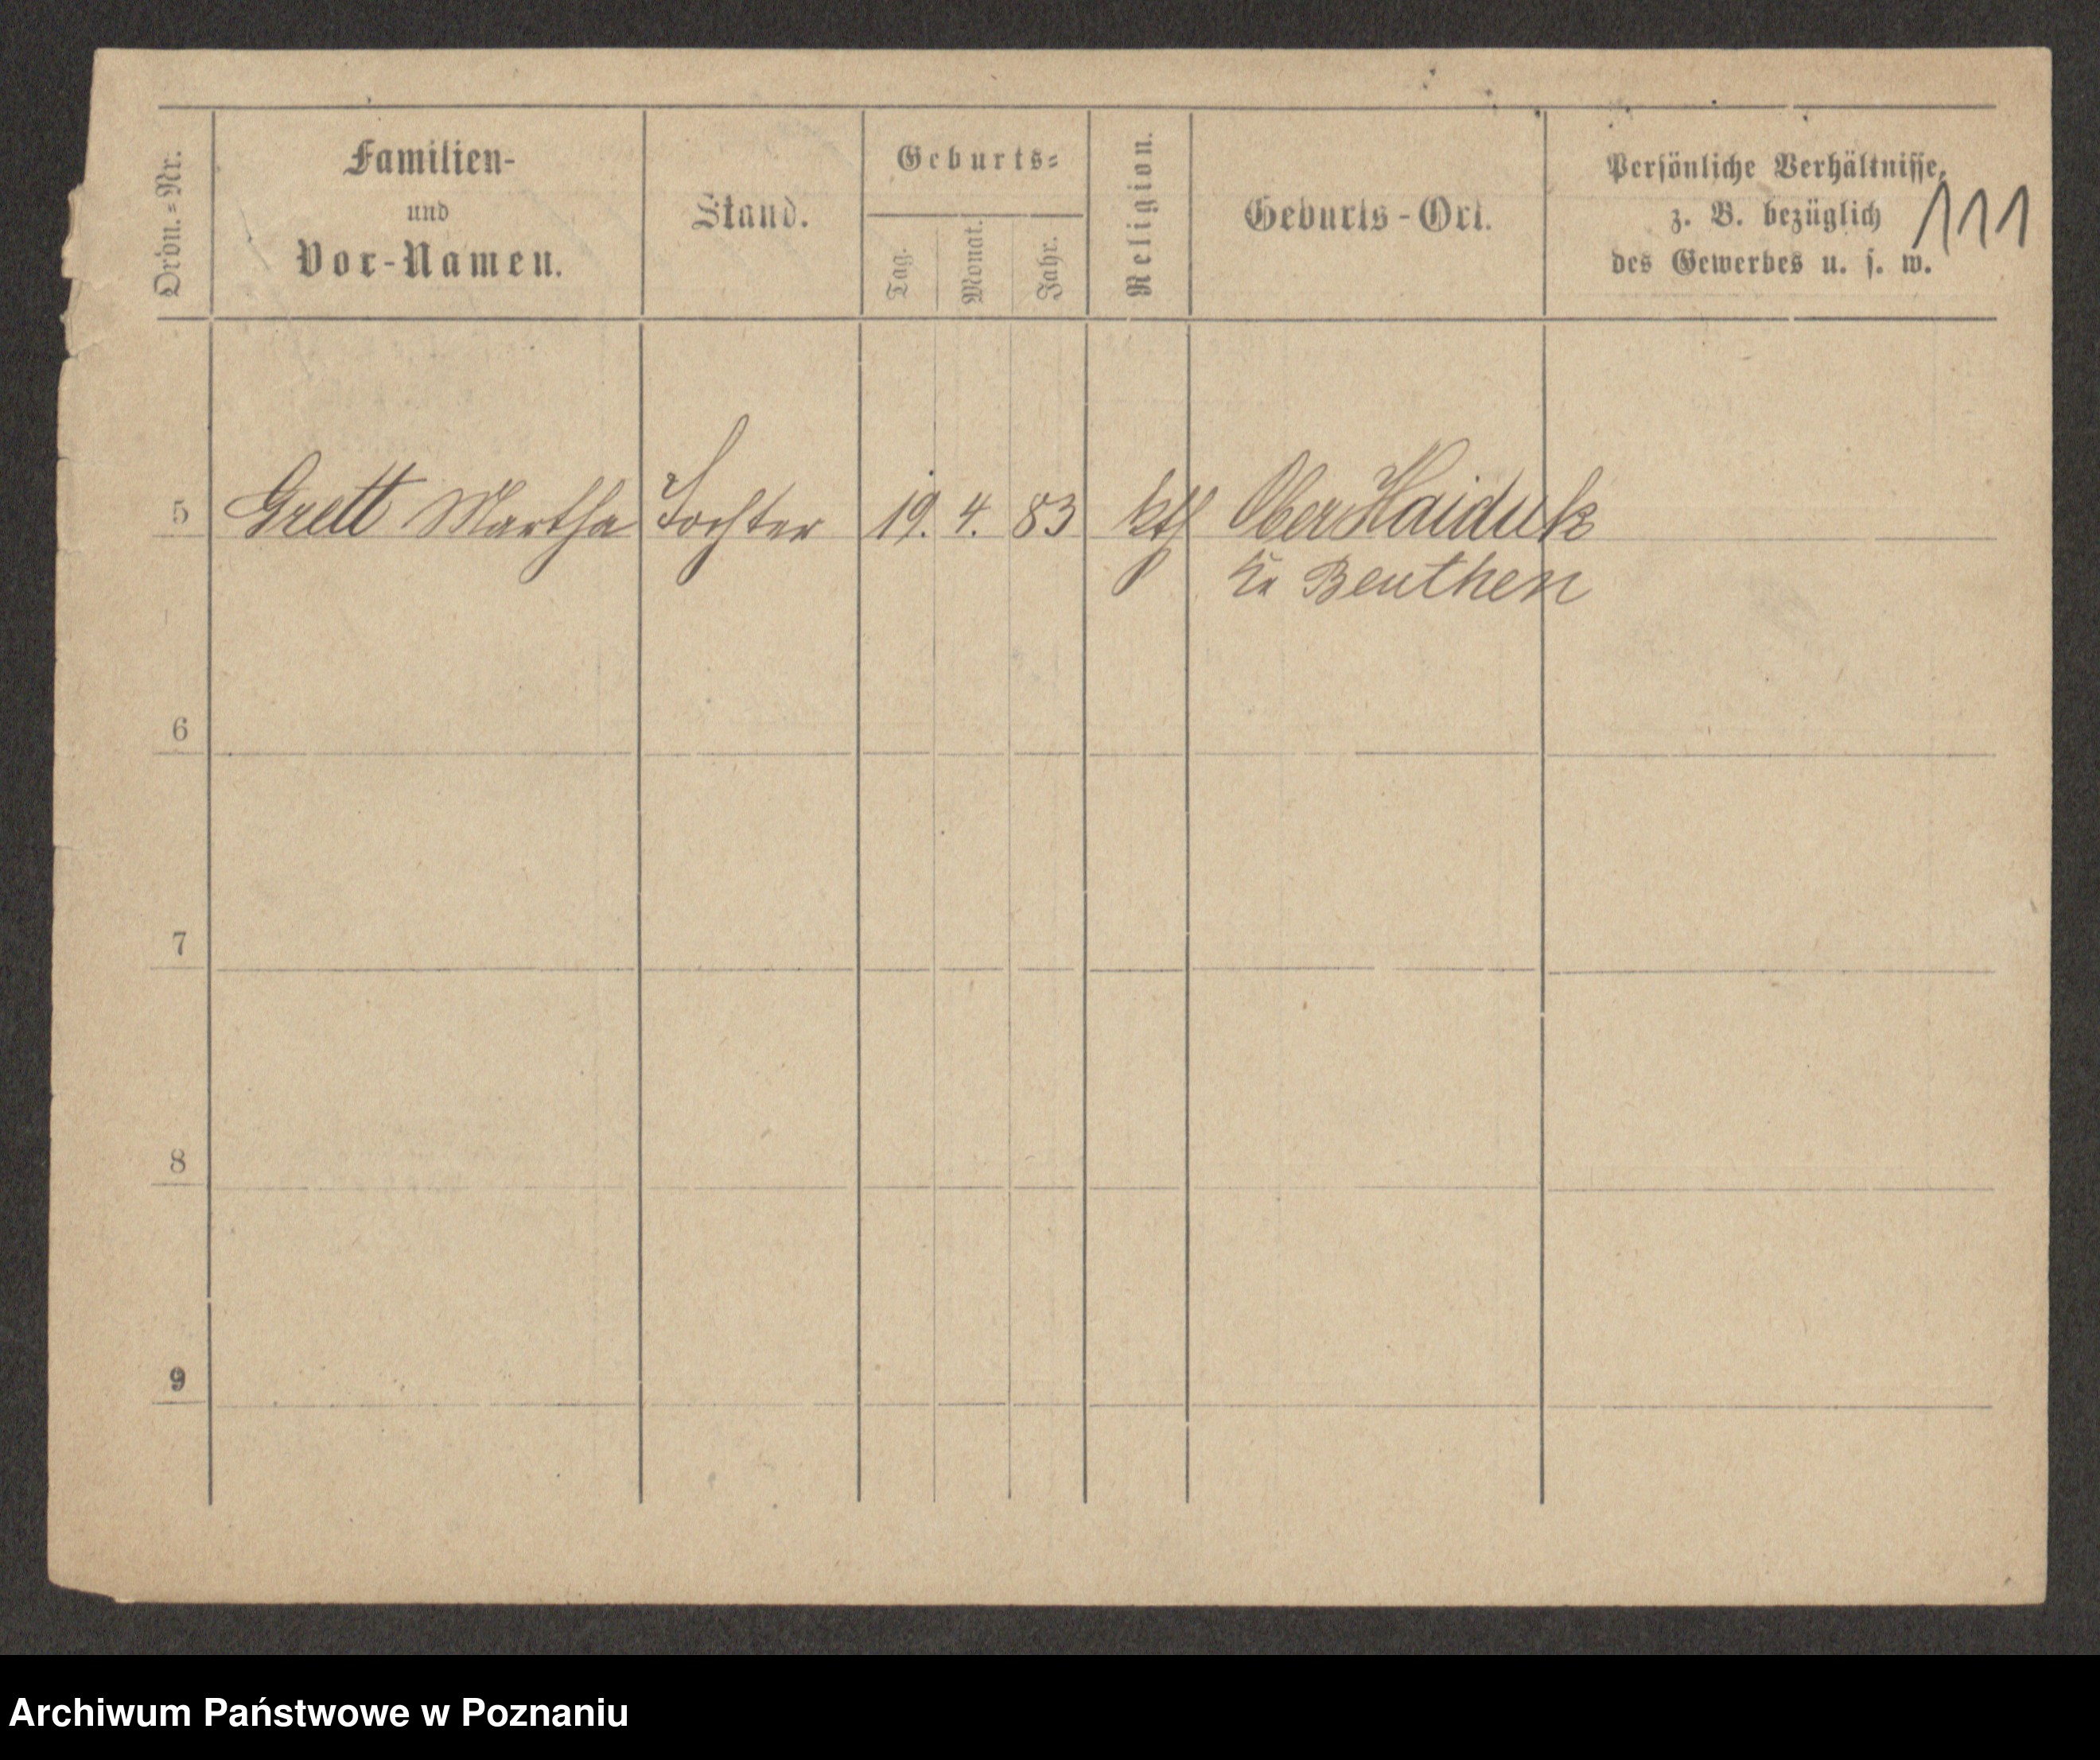 Ordn.=Nr.
Familien-
und
Vor-Namen.
Stand.
Geburts=
Tag.
Monat.
Jahr.
Religion.
Geburts-Ort.
Persönliche Verhältnisse,
z. B. bezüglich
des Gewerbes u. s. w.
111
5 Grett Martha Tochter 19. 4. 83 kth Ober Haiduk
Kr Beuthen
6
7
8
9
Archiwum Państwowe w Poznaniu